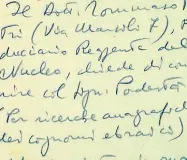 Il Dott. Tommaso
(Via Marsili 7),
duciario Reggente del
Nucleo, chiede di con
rire col Sign. Podestà
"Per ricerche anagrafich
dei cognomi ebraici)